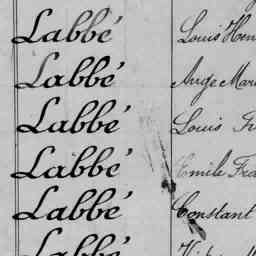 Labbé Louis Hen
Labbé Ange Mari
Labbé Louis Fr
Labbé Emile Fra
Labbé Constant
Labbé